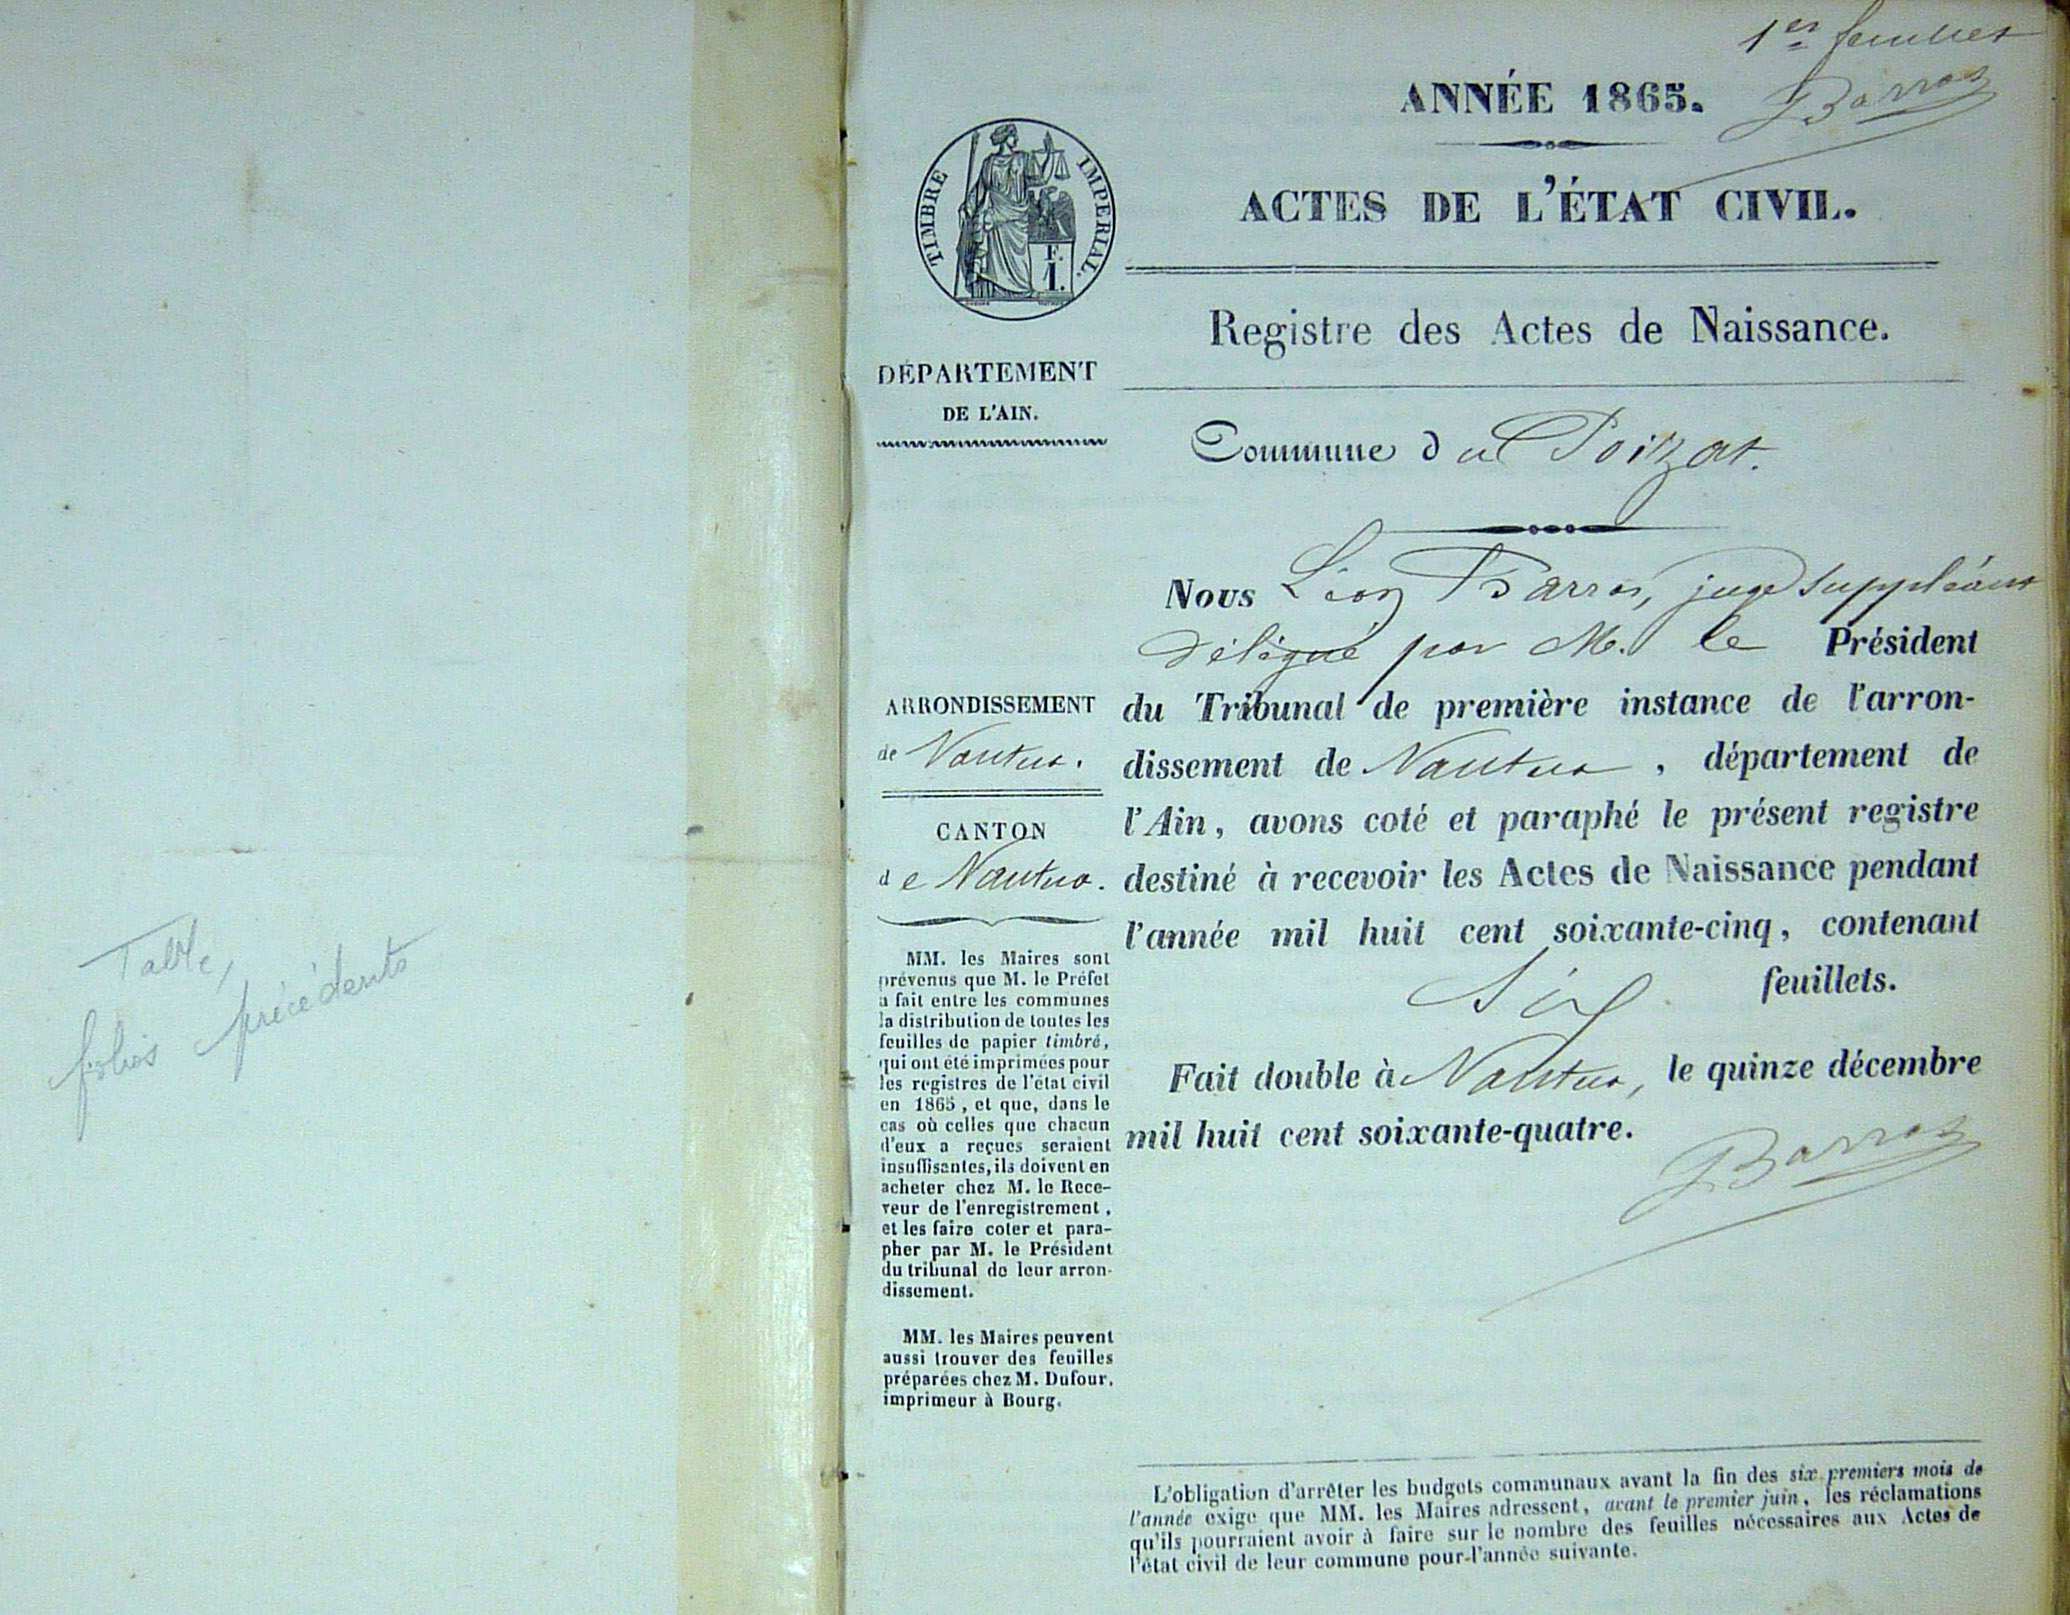 Table,
folios précédents
1er feuillet
Barros
ANNÉE 1865.
TIMBRE IMPERIAL.
F.
1.
ACTES DE L'ÉTAT CIVIL.
Registre des Actes de Naissance.
DÉPARTEMENT
DE L'AIN.
Commune du Poizat.
Nous Léon Barros, juge suppléant
délégué par M. le Président
du Tribunal de première instance de l'arron-
dissement de Nantua, département de
l'Ain, avons coté et paraphé le présent registre
destiné à recevoir les Actes de Naissance pendant
l'année mil huit cent soixante-cinq, contenant
Six feuillets.
Fait double à Nantua, le quinze décembre
mil huit cent soixante-quatre.
Barros
ARRONDISSEMENT
de Nantua.
CANTON
de Nantua.
MM. les Maires sont
prévenus que M. le Préfet
a fait entre les communes
la distribution de toutes les
feuilles de papier timbré,
qui ont été imprimées pour
les registres de l'état civil
en 1865, et que, dans le
cas où celles que chacun
d'eux a reçues seraient
insuffisantes, ils doivent en
acheter chez M. le Rece-
veur de l'enregistrement,
et les faire coter et para-
pher par M. le Président
du tribunal de leur arron-
dissement.
MM. les Maires peuvent
aussi trouver des feuilles
préparées chez M. Dufour,
imprimeur à Bourg.
L'obligation d'arrêter les budgets communaux avant la fin des six premiers mois de
l'année exige que MM. les Maires adressent, avant le premier juin, les réclamations
qu'ils pourraient avoir à faire sur le nombre des feuilles nécessaires aux Actes de
l'état civil de leur commune pour l'année suivante.